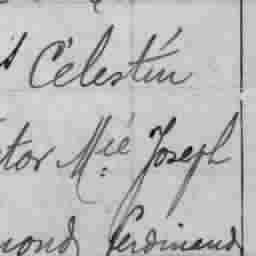 Célestin
tor Mie Joseph
mond Ferdinand